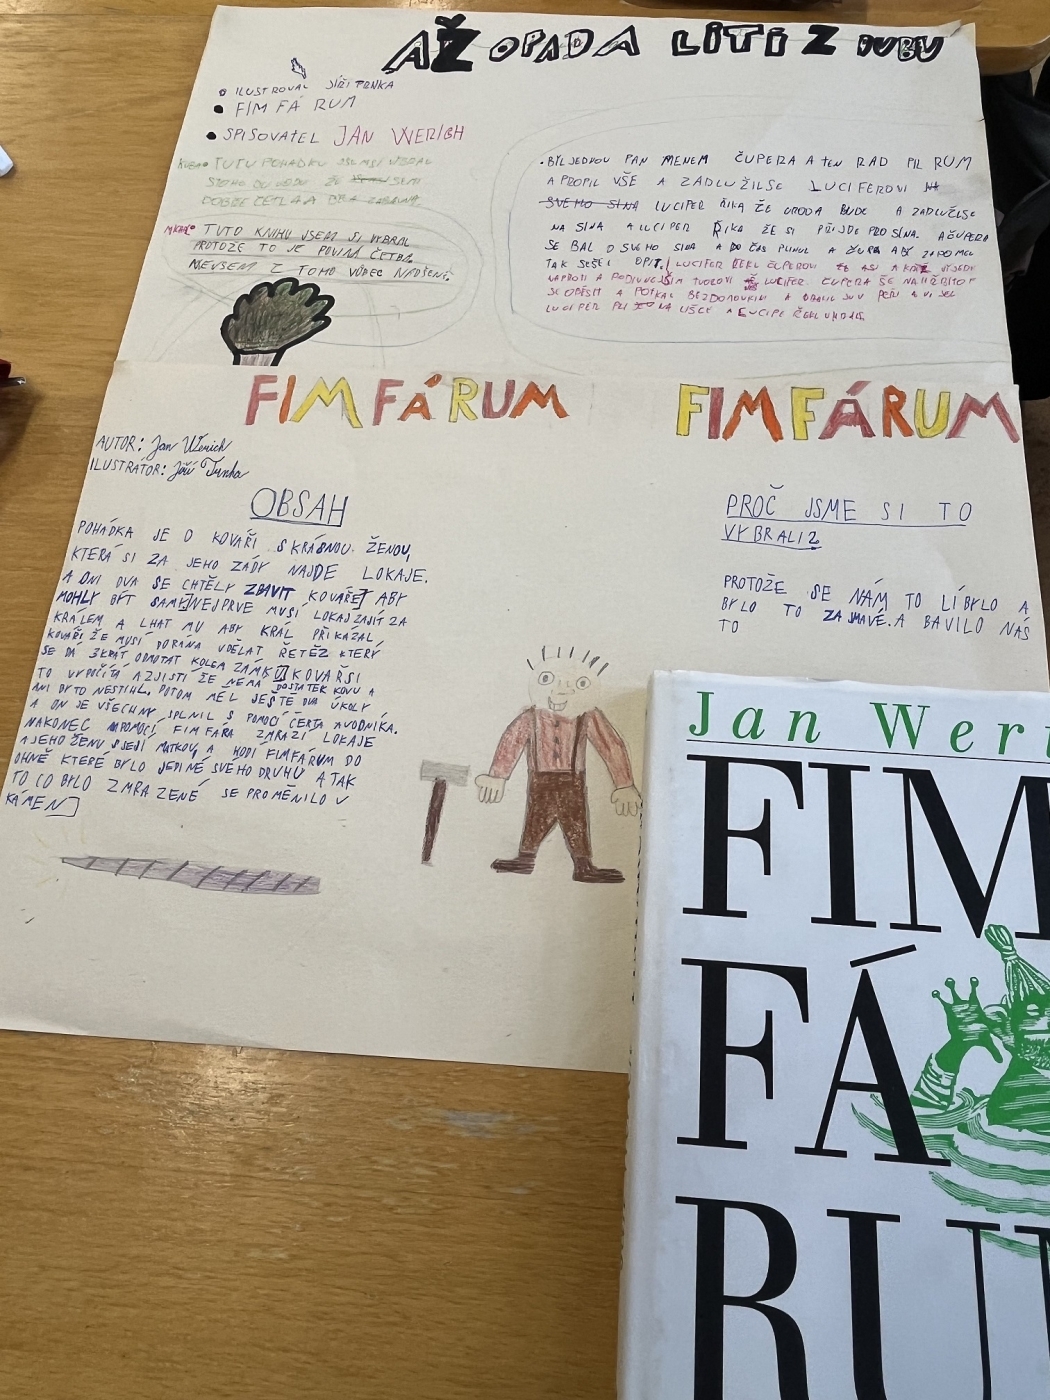 AŽ OPADA LÍTÍ Z DUBU
ILUSTROVAL JÍŘÍ TRNKA
FIM FÁ RUM
SPISOVATEL JAN WERICH
TUTU POHADKU JSEM SI VYBRAL
ŽE JSEM SEMI
DOBŘE ČETLA A BYLA ZABAVNÁ.
TUTO KNIHU JSEM SI VYBRAL
PROTOŽE TO JE POVINÁ ČETBA
NEJSEM Z TOHO VŮBEC NADŠENÝ.
BYL JEDNOU PAN MENEM ČUPERA A TEN RAD PIL RUM
A PROPIL VŠE A ZADLUŽILSE LUCIFEROVI
SVEHO SINA LUCIFER ŘIKA ŽE URODA BUDE A ZADLUČILSE
NA SINA A LUCIPER ŘIKA ŽE SI PŘIJDE PRO SINA. AČUPERA
SE BAL O SVEHO SINA A ČAS PLINUL A ABY ZAPOMEL
TAK SEŠEL OPIT. LUCIFER ŘEKL ČUPEROVI
LUCIFER. ČUPERA SE
SE OBĚSIT A POTKAL BEZDOMOVKINI A
FIMFÁRUM
FIMFÁRUM
AUTOR: Jan Werich
ILUSTRÁTOR: Jiří Trnka
OBSAH
POHÁDKA JE O KOVÁŘI S KRÁSNOU ŽENOU,
KTERÁ SI ZA JEHO ZÁDY NAJDE LOKAJE.
A ONI DVA SE CHTĚLY ZBAVIT KOVÁŘE ABY
MOHLY BÝT SAMI. NEJPRVE MUSÍ LOKAJ ZAJÍT ZA
KRÁLEM A LHAT MU ABY KRÁL PŘIKÁZAL
KOVÁŘI ŽE MUSÍ DORÁNA VDĚLAT ŘETĚZ KTERÝ
SE DÁ 3KRÁT OBMOTAT KOLEM ZÁMKU. KOVÁŘ SI
TO VYPOČÍTÁ A ZJISTÍ ŽE NEMÁ DOSTATEK KOVU A
ANI BY TO NESTIHL. POTOM MĚL JEŠTĚ DVA ÚKOLY
A ON JE VŠECHNY SPLNIL S POMOCÍ ČERTA A VODNÍKA.
NAKONEC POMOCÍ FIMFÁRA ZMRAZÍ LOKAJE
A JEHO ŽENU S JEJÍ MATKOU, A HODÍ FIMFÁRUM DO
OHNĚ KTERÉ BYLO JEDINÉ SVÉHO DRUHU A TAK
TO CO BYLO ZMRAZENÉ SE PROMĚNILO V
KÁMEN
PROČ JSME SI TO
VYBRALI?
PROTOŽE SE NÁM TO LÍBYLO A
BYLO TO ZAJMAVÉ. A BAVILO NÁS
TO
Jan Wer
FIM
FÁ
RU